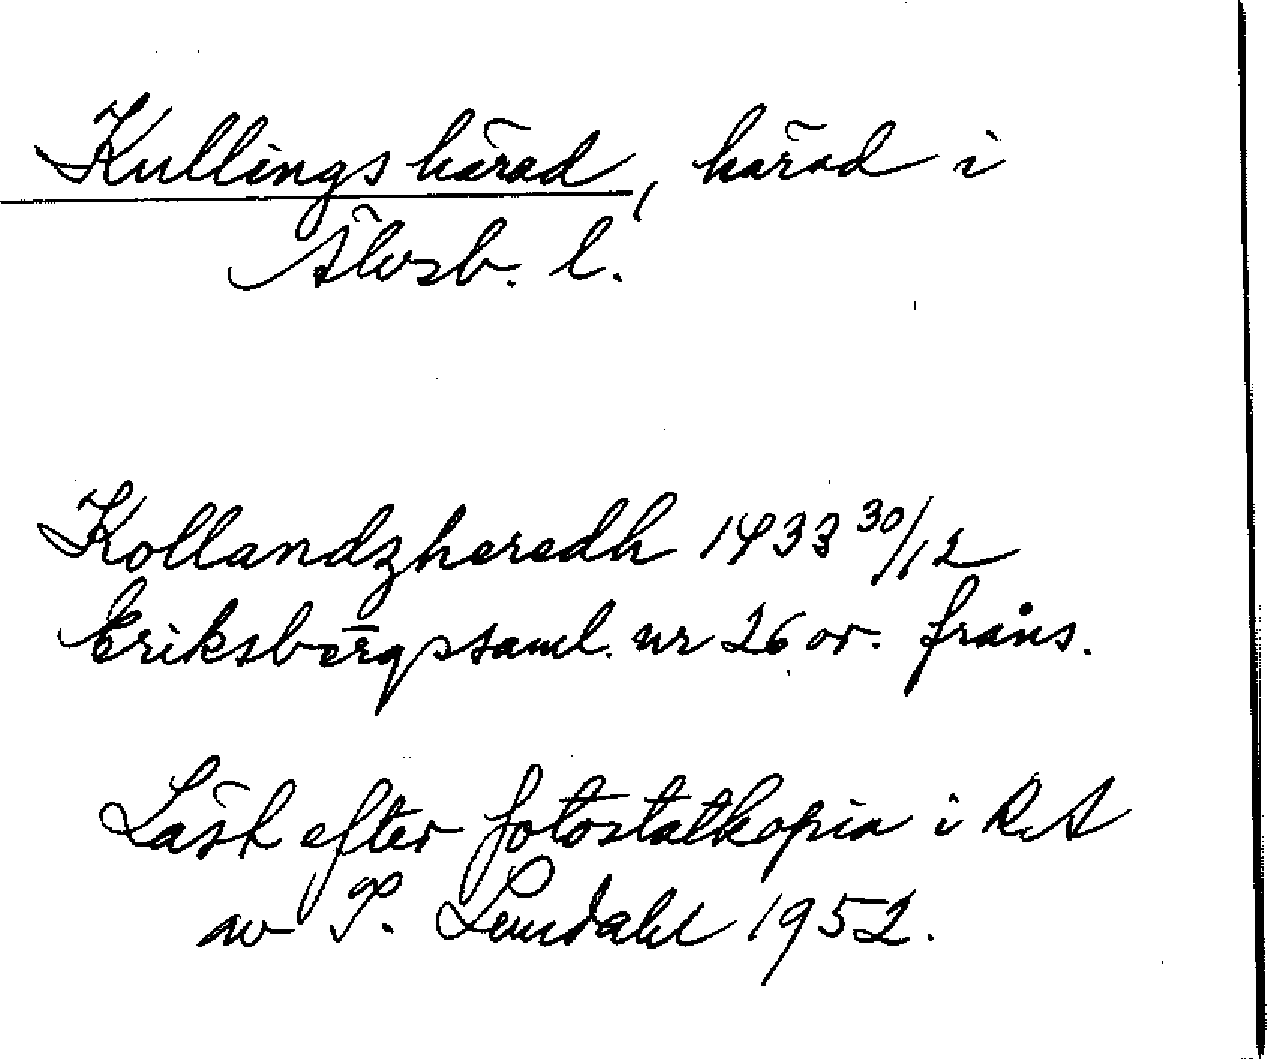 Kullings härad, härad i
Älvsb. l.
Kollandzheredh 1433 30/12
Eriksbergssaml. nr 26 or. frans.
Läst efter fotostatkopia i RA
av P. Lindahl 1952.